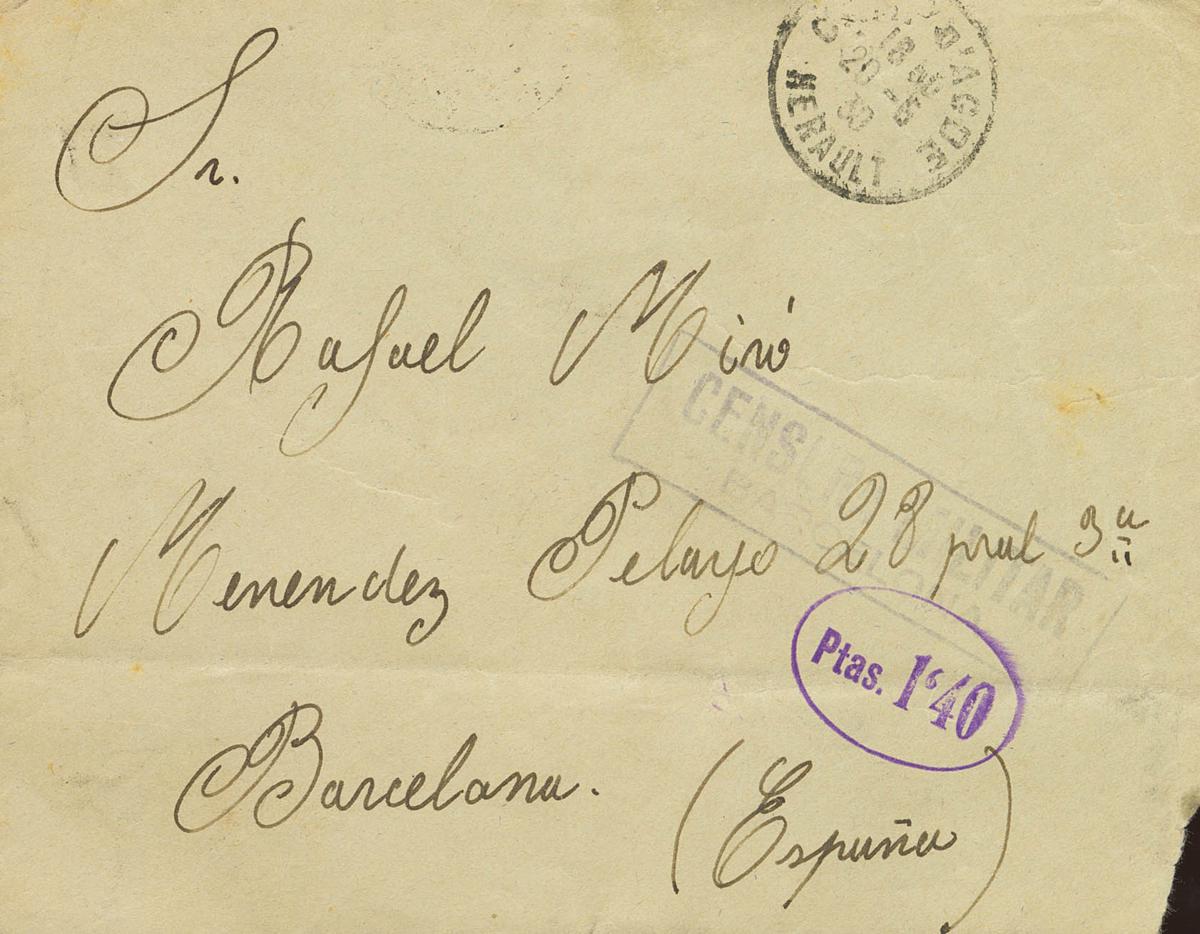 Sr.
D'AGDE
HERAULT
Rafael Miró
CENSURA MILITAR
BARCELONA
Menendez Pelayo 28 pral 3ª
Ptas. 1'40
Barcelona.
(España)